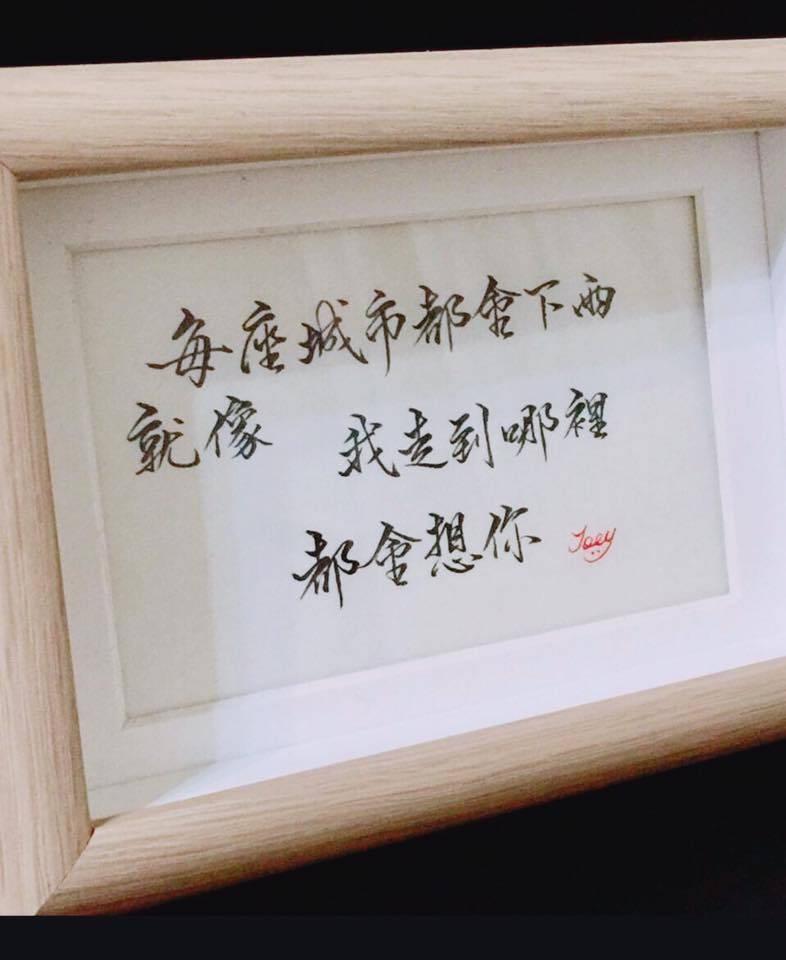 每座城市都會下雨
就像 我走到哪裡
都會想你 Joey